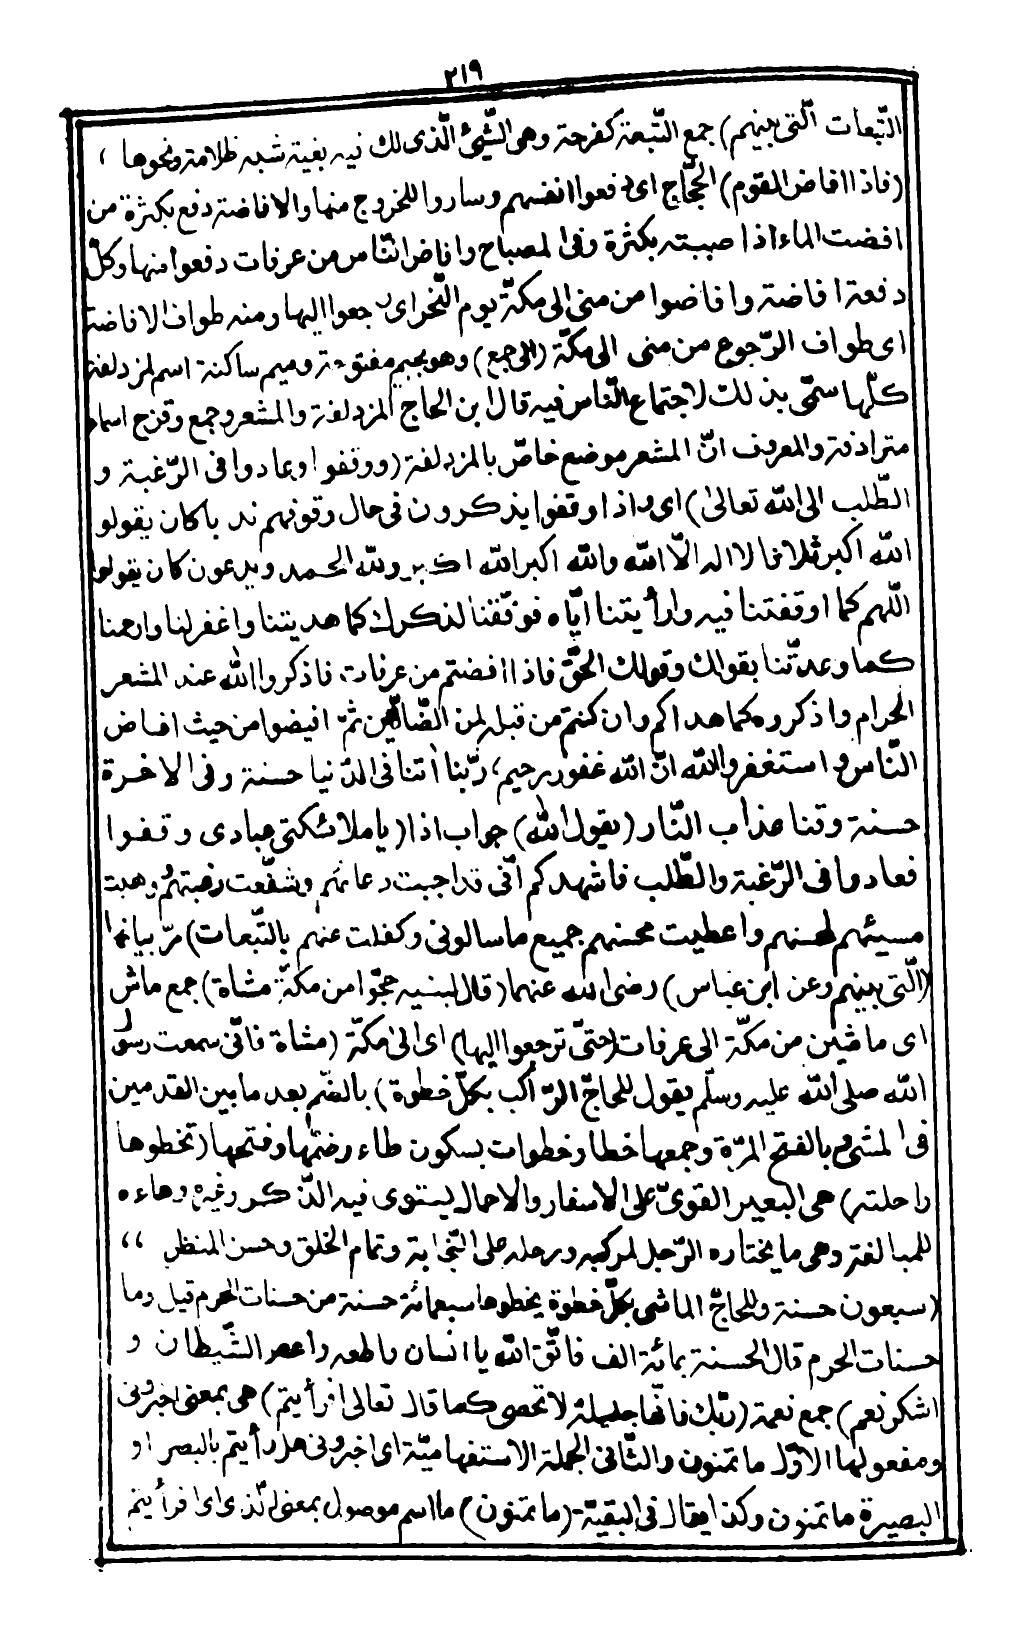 ٢١٩
التّبعات الّتى بينهم) جمع التّبعة كفرحة وهى الشّيئ الّذى لك فيه بغية شبه ظلامة ونحوها ،
(فاذا افاض القوم) الحجّاج اى دفعوا انفسهم وساروا للخروج منها والافاضة دفع بكثرة من
افضت الماء اذا صببته بكثرة وفى المصباح وافاض النّاس من عرفات دفعوا منها وكلّ
دفعة افاضة وافاضوا من منى الى مكّة يوم النّحر اى رجعوا اليها ومنه طواف الافاضة
اى طواف الرّجوع من منى الى مكّة (الى جمع) وهو بجيم مفتوحة وميم ساكنة اسم لمزدلفة
كلّها سمّى بذلك لاجتماع النّاس فيه قال ابن الحاج المزدلفة والمشعر وجمع وقزح اسماء
مترادفة والمعروف انّ المشعر موضع خاصّ بالمزدلفة (ووقفوا وعادوا فى الرّغبة و
الطّلب الى الله تعالىٰ) اى واذا وقفوا يذكرون فى حال وقوفهم ند با كان يقولو
الله اكبر ثلاثا لا اله الّا الله والله اكبر الله اكبر ولله الحمد ويدعون كان يقولوا
اللّهم كما اوقفتنا فيه وارأيتنا ايّاه فوفّقنا لذكرك كما هديتنا واغفر لنا وارحمنا
كما وعدتّنا بقولك وقولك الحقّ فاذا افضتم من عرفات فاذكروا الله عند المشعر
الحرام واذكروه كما هداكم وان كنتم من قبله لمن الضّالّين ثمّ افيضوا من حيث افاض
النّاس واستغفروا الله انّ الله غفور رحيم، ربّنا اٰتنا فى الدّنيا حسنة وفى الاخرة
حسنة وقنا عذاب النّار (يقول الله) جواب اذا (يا ملائكتى عبادى وقفوا
فعادوا فى الرّغبة والطّلب فاشهدكم انّى قد اجبت دعائهم وشفّعت رغبتهم ووهبت
مسيئهم لمحسنهم واعطيت محسنهم جميع ما سالونى وكفلت عنهم بالتّبعات) مرّ بيانها
(الّتى بينهم وعن ابن عباس) رضى الله عنهما (قال لبنيه حجّوا من مكّة مشاة) جمع ماش
اى ماشين من مكّة الى عرفات (حتىّ ترجعوا اليها) اى الىٰ مكّة (مشاة فانّى سمعت رسول
الله صلى الله عليه وسلّم يقول للحاجّ الرّاكب بكلّ خطوة) بالضّم بعد ما بين القدمين
فى المشى وبالفتح المرّة وجمعها خطا وخطوات بسكون طاء وضمّها وفتحها (تخطوها
راحلته) هى البعير القوىّ على الاسفار والاحمال يستوى فيه الذّكر وغيره وهاءه
للمبالغة وهى ما يختاره الرّجل لمركبه ورحله على النّجابة وتمام الخلق وحسن المنظر ،،
(سبعون حسنة وللحاجّ الماشى بكلّ خطوة يخطوها سبعمائة حسنة من حسنات الحرم قيل وما
حسنات الحرم قال الحسنة بمائة الف فاتّق الله يا انسان واطعه واعص الشّيطان و
اشكر نعم) جمع نعمة (ربّك فانّها جليلة لا تحصى كما قال تعالى افرأيتم) هى بمعنى اخبرونى
ومفعولها الاوّل ما تمنون والثّانى الجملة الاستفهاميّة اى اخبرونى هل رأيتم بالبصر او
البصيرة ما تمنون وكذا يقال فى البقيّة (ما تمنون) ما اسم موصول بمعنى الّذى اى افرأيتم